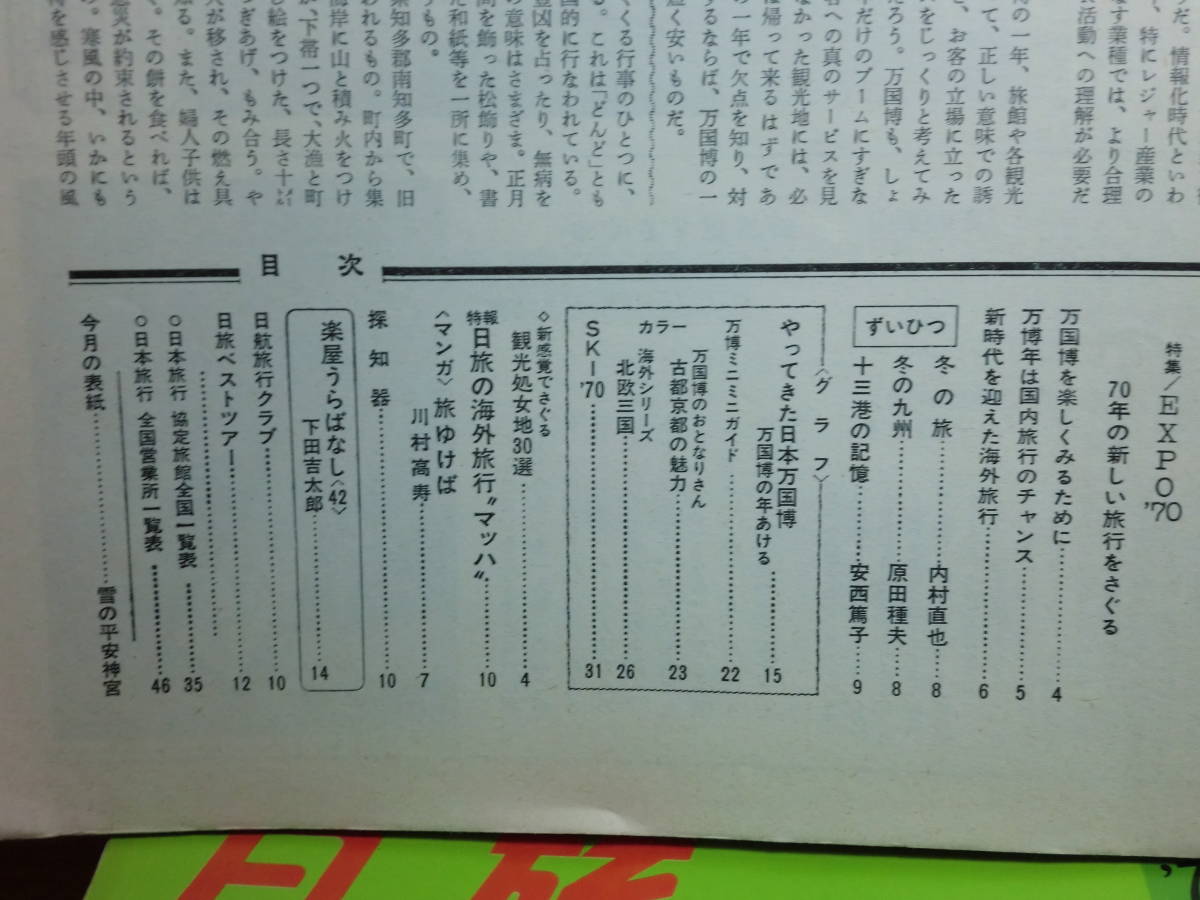 うだ。情報化時代といわ
、特にレジャー産業の
なす業種では、より合理
活動への理解が必要だ
の一年、旅館や各観光
て、正しい意味での誘
、お客の立場に立った
をじっくりと考えてみ
だろう。万国博も、しょ
だけのブームにすぎな
への真のサービスを見
なかった観光地には、必
は帰って来るはずであ
の一年で欠点を知り、対
するならば、万国博の一
く安いものだ。
くる行事のひとつに、
る。これは「どんど」とも
国的に行なわれている。
豊凶を占ったり、無病を
の意味はさまざま。正月
間を飾った松飾りや、書
た和紙等を一所に集め、
うもの。
知多郡南知多町で、旧
われるもの。町内から集
海岸に山と積み火をつけ
下帯一つで、大漁と町
し絵をつけた、長さ十㍍
ぎあげ、もみ合う。や
が移され、その燃え具
る。また、婦人子供は
く。その餅を食べれば、
災が約束されるという
。寒風の中、いかにも
を感じさせる年頭の風
目次
特集/EXPO'70
70年の新しい旅行をさぐる
万国博を楽しくみるために……4
万博年は国内旅行のチャンス……5
新時代を迎えた海外旅行……6
ずいひつ
冬の旅……内村直也……8
冬の九州……原田種夫……8
十三港の記憶……安西篤子……9
〈グラフ〉
やってきた日本万国博
万国博の年あける……15
万博ミニミニガイド……22
万国博のおとなりさん
古都京都の魅力……23
カラー海外シリーズ
北欧三国……26
SKI'70……31
◇新感覚でさぐる
観光処女地30選……4
特報 日旅の海外旅行〝マッハ〟……10
〈マンガ〉旅ゆけば
川村高寿……7
探知器……10
楽屋うらばなし〈42〉
下田吉太郎……14
日航旅行クラブ……10
日旅ベストツアー……12
○日本旅行 協定旅館全国一覧表……35
○日本旅行 全国営業所一覧表……46
今月の表紙……雪の平安神宮
日旅